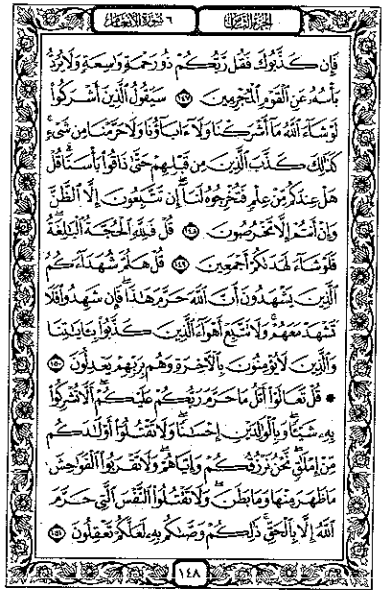 الجزء الثامن ٦ سورة الأنعام
فَإِن كَذَّبُوكَ فَقُل رَّبُّكُمْ ذُو رَحْمَةٍ وَٰسِعَةٍ وَلَا يُرَدُّ
بَأْسُهُۥ عَنِ ٱلْقَوْمِ ٱلْمُجْرِمِينَ ١٤٧ سَيَقُولُ ٱلَّذِينَ أَشْرَكُوا۟
لَوْ شَآءَ ٱللَّهُ مَآ أَشْرَكْنَا وَلَآ ءَابَآؤُنَا وَلَا حَرَّمْنَا مِن شَىْءٍ ۚ
كَذَٰلِكَ كَذَّبَ ٱلَّذِينَ مِن قَبْلِهِمْ حَتَّىٰ ذَاقُوا۟ بَأْسَنَا ۗ قُلْ
هَلْ عِندَكُم مِّنْ عِلْمٍ فَتُخْرِجُوهُ لَنَآ ۖ إِن تَتَّبِعُونَ إِلَّا ٱلظَّنَّ
وَإِنْ أَنتُمْ إِلَّا تَخْرُصُونَ ١٤٨ قُلْ فَلِلَّهِ ٱلْحُجَّةُ ٱلْبَٰلِغَةُ ۖ
فَلَوْ شَآءَ لَهَدَىٰكُمْ أَجْمَعِينَ ١٤٩ قُلْ هَلُمَّ شُهَدَآءَكُمُ
ٱلَّذِينَ يَشْهَدُونَ أَنَّ ٱللَّهَ حَرَّمَ هَٰذَا ۖ فَإِن شَهِدُوا۟ فَلَا
تَشْهَدْ مَعَهُمْ ۚ وَلَا تَتَّبِعْ أَهْوَآءَ ٱلَّذِينَ كَذَّبُوا۟ بِـَٔايَٰتِنَا
وَٱلَّذِينَ لَا يُؤْمِنُونَ بِٱلْءَاخِرَةِ وَهُم بِرَبِّهِمْ يَعْدِلُونَ ١٥٠
۞ قُلْ تَعَالَوْا۟ أَتْلُ مَا حَرَّمَ رَبُّكُمْ عَلَيْكُمْ ۖ أَلَّا تُشْرِكُوا۟
بِهِۦ شَيْـًٔا ۖ وَبِٱلْوَٰلِدَيْنِ إِحْسَٰنًا ۖ وَلَا تَقْتُلُوٓا۟ أَوْلَٰدَكُم
مِّنْ إِمْلَٰقٍ ۖ نَّحْنُ نَرْزُقُكُمْ وَإِيَّاهُمْ ۖ وَلَا تَقْرَبُوا۟ ٱلْفَوَٰحِشَ
مَا ظَهَرَ مِنْهَا وَمَا بَطَنَ ۖ وَلَا تَقْتُلُوا۟ ٱلنَّفْسَ ٱلَّتِى حَرَّمَ
ٱللَّهُ إِلَّا بِٱلْحَقِّ ۚ ذَٰلِكُمْ وَصَّىٰكُم بِهِۦ لَعَلَّكُمْ تَعْقِلُونَ ١٥١
١٤٨